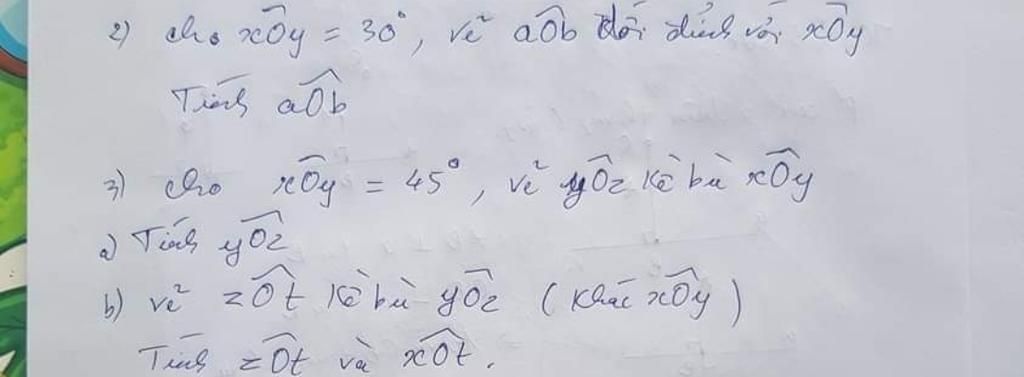 2) cho xOy = 30°, vẽ aOb đối đỉnh với xOy
Tính aOb
3) cho xOy = 45°, vẽ yOz kề bù xOy
a) Tính yOz
b) vẽ zOt kề bù yOz (khác xOy)
Tính zOt và xOt.